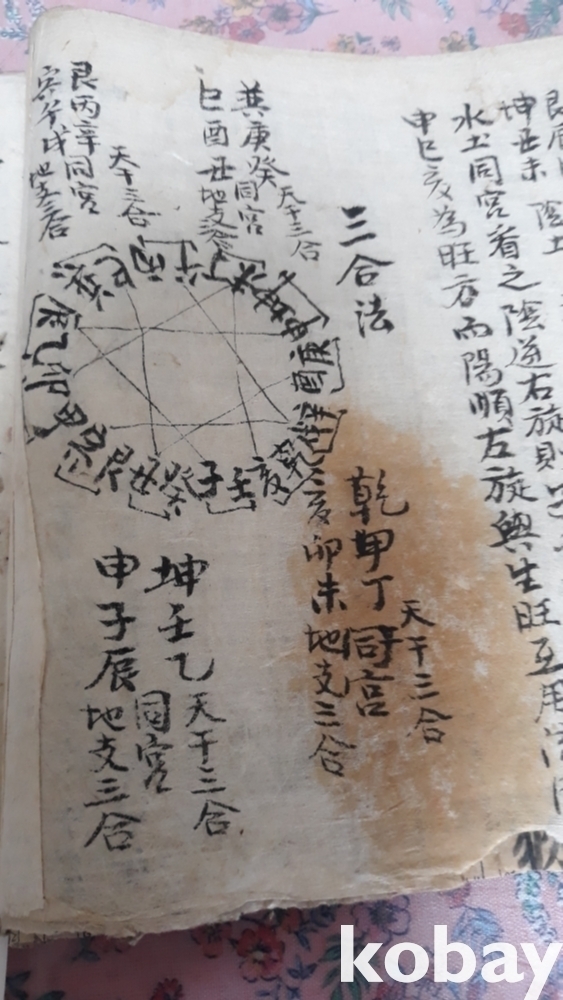 水土同宮看之陰逆右旋則
申巳亥為旺方而陽順左旋與生旺互用
三合法
乾甲丁同宮
天干三合
亥卯未地支三合
巽庚癸同宮
天干三合
巳酉丑地支三合
艮丙辛同宮
天干三合
寅午戌地支三合
坤壬乙同宮
天干三合
申子辰地支三合
庚
酉
乾
亥
壬
子
癸
丑
艮
甲
卯
乙
辰
丙
kobay